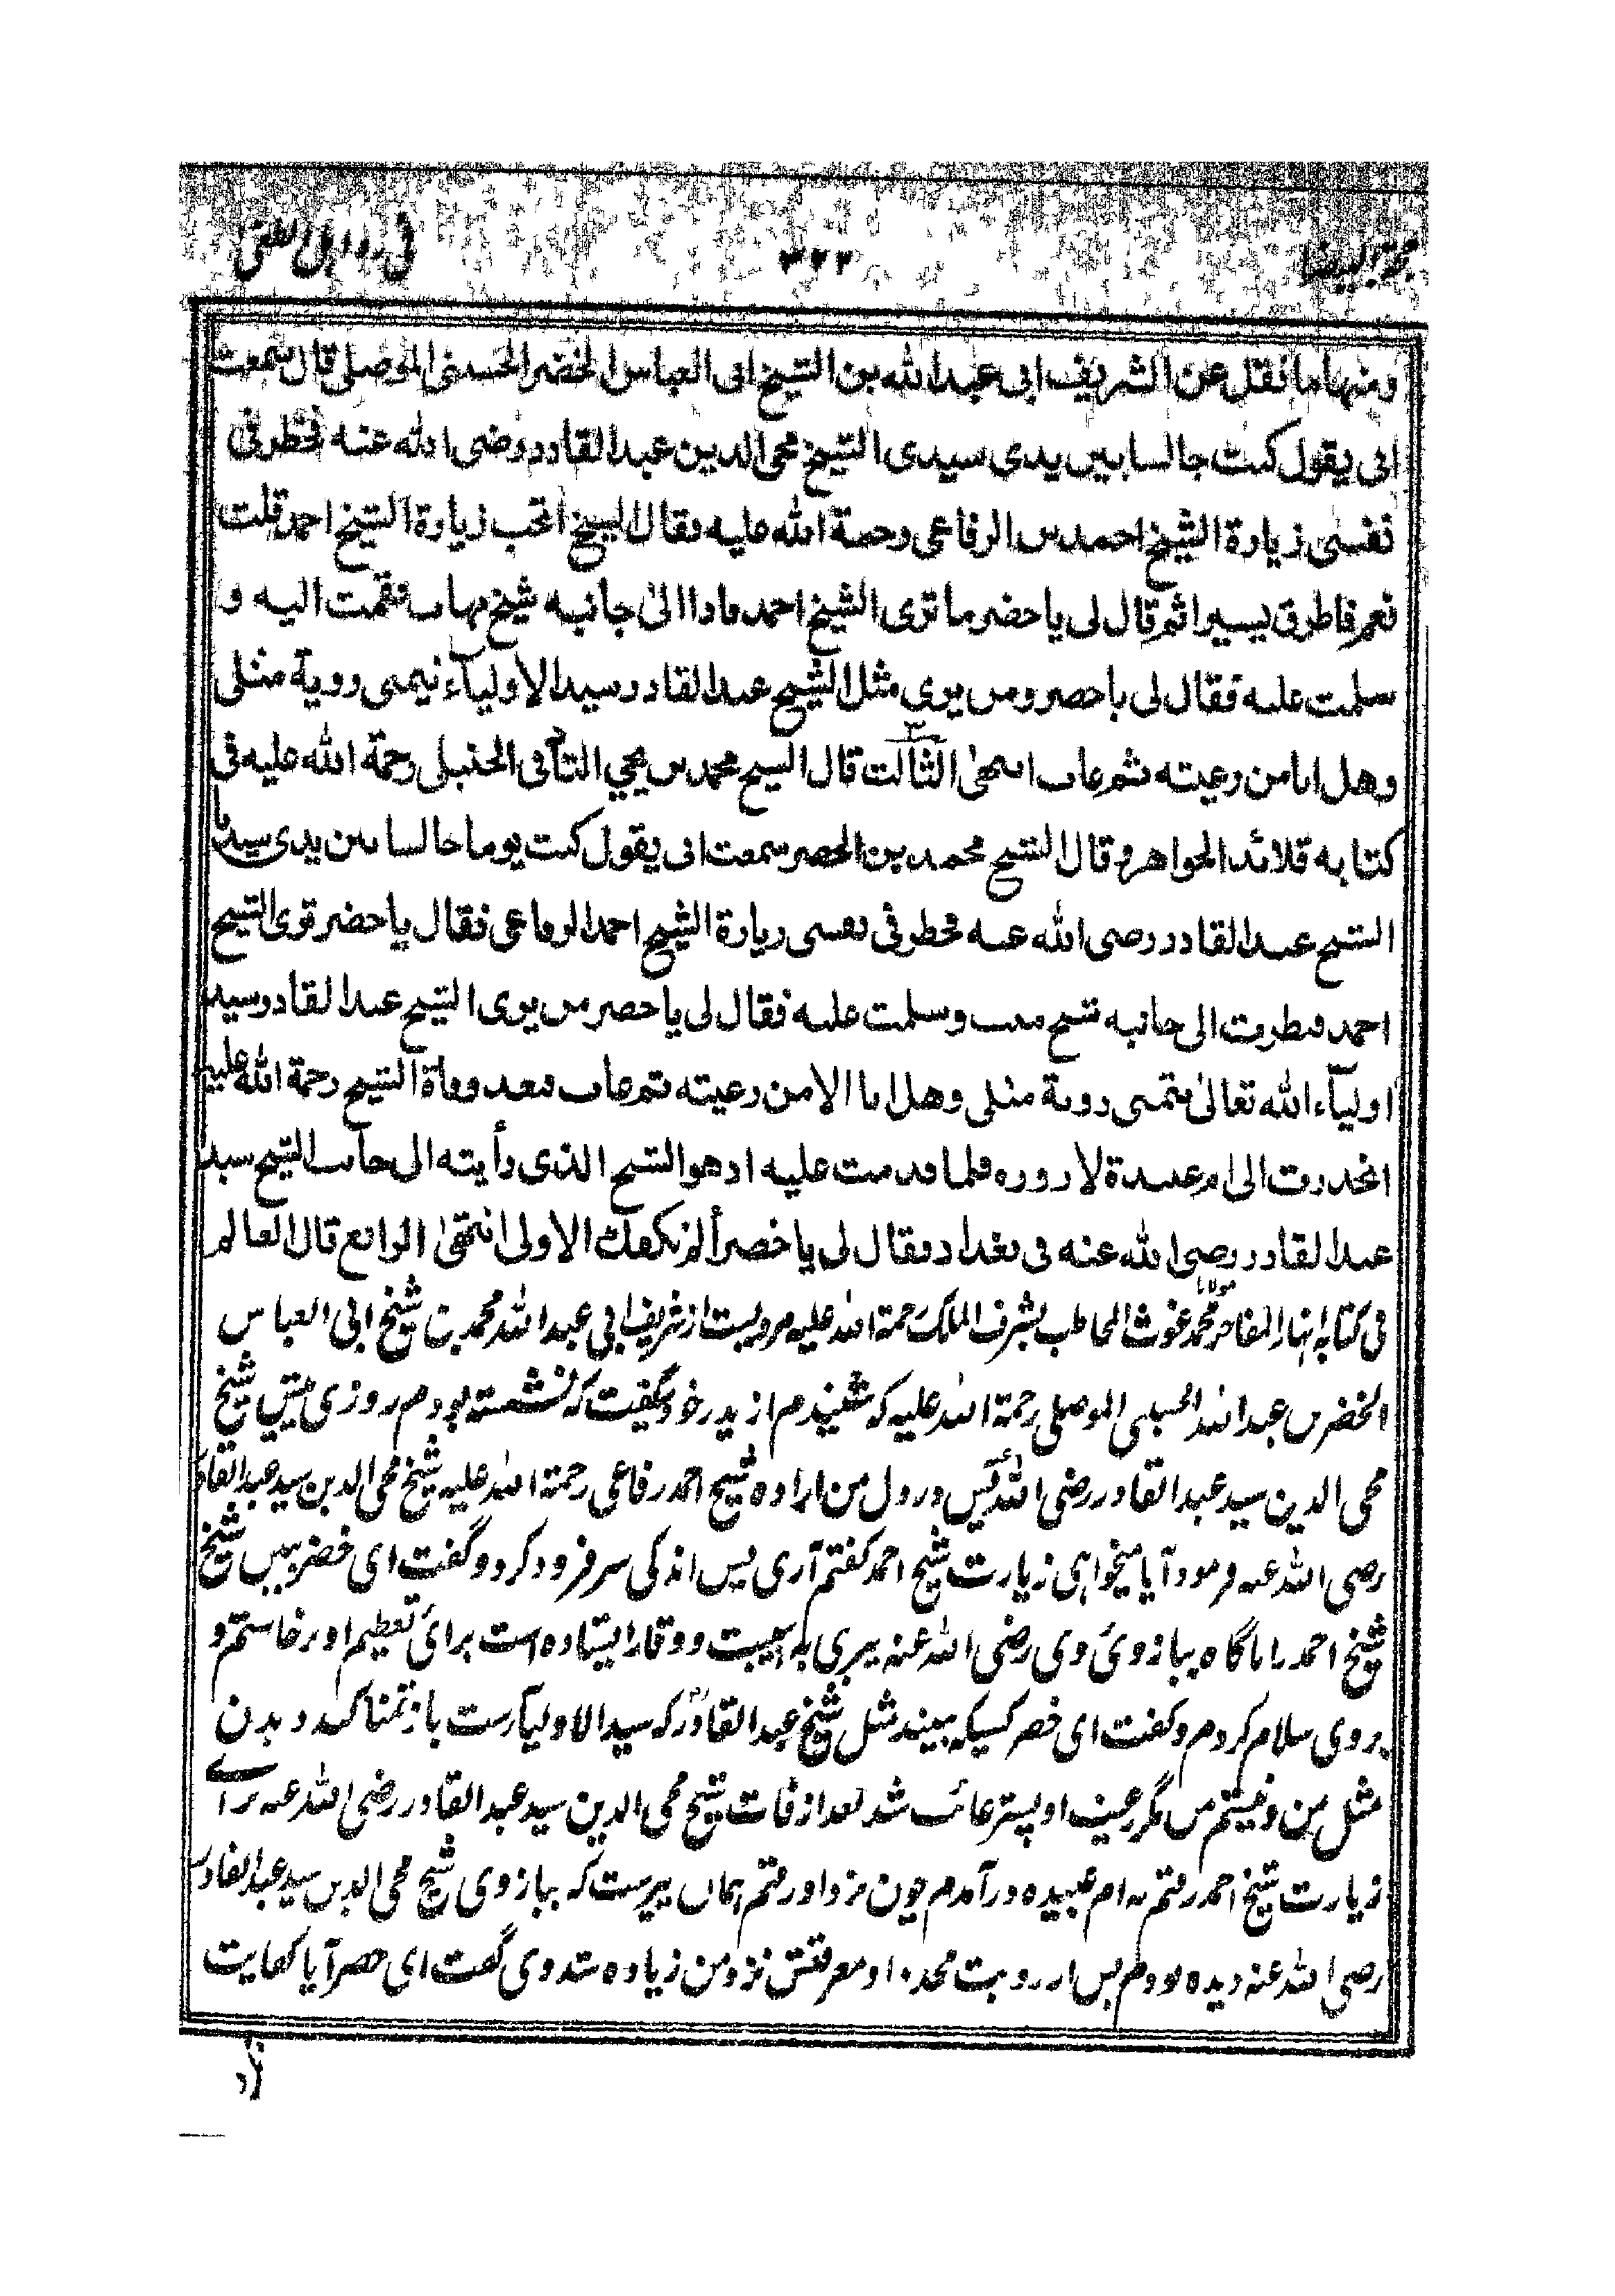 حجة البيضا ٢٢٢ في رد اهل الطغى
ومنها ما نقل عن الشريف ابى عبد الله بن الشيخ ابى العباس الخضر الحسنى الموصلى قال سمعت
ابى يقول كنت جالسا بين يدى سيدى الشيخ محى الدين عبد القادر رضى الله عنه فخطر فى
نفسى زيارة الشيخ احمد بن الرفاعى رحمة الله عليه فقال الشيخ اتحب زيارة الشيخ احمد قلت
نعم فاطرق يسيرا ثم قال لى يا خضر ما ترى الشيخ احمد فاذا الى جانبه شيخ مهاب فقمت اليه و
سلمت عليه فقال لى يا خضر ومن يرى مثل الشيخ عبد القادر سيد الاولياء يتمنى روية مثلى
وهل انا من رعيته ثم غاب انتهىٰ الثالث قال الشيخ محمد بن يحيي التاذفى الحنبلى رحمة الله عليه فى
كتابه قلائد الجواهر و قال الشيخ محمد بن الخضر سمعت ابى يقول كنت يوما جالسا بين يدى سيدنا
الشيخ عبد القادر رضى الله عنه فخطر فى نفسى زيارة الشيخ احمد الرفاعى فقال يا خضر ترى الشيخ
احمد فنظرت الى جانبه شيخ مهيب وسلمت عليه فقال لى يا خضر من يرى الشيخ عبد القادر سيد
اولياء الله تعالىٰ يتمنى روية مثلى وهل انا الا من رعيته ثم غاب فبعد وفاة الشيخ رحمة الله عليه
انحدرت الىٰ ام عبيدة لازوره فلما قدمت عليه اذ هو الشيخ الذى رأيته الى جانب الشيخ سيد
عبد القادر رضى الله عنه فى بغداد فقال لى يا خضر ألم تكفك الاولى انتهىٰ الرابع قال العالم
فى كتابه انهار المفاخر مولانا محمد غوث المخاطب بشرف الملك رحمة الله عليه مرويست از شريف ابى عبد الله محمد بن شيخ ابى العباس
الخضر بن عبد الله الحسينى الموصلى رحمة الله عليه كه شنيدم از پدر خود ميگفت كه نشسته بودم روزى پيش شيخ
محى الدين سيد عبد القادر رضى الله عنه پس در دل من اراده شيخ احمد رفاعى رحمة الله عليه شيخ محى الدين سيد عبد القادر
رضى الله عنه فرمود آيا ميخواهى زيارت شيخ احمد گفتم آرى پس اندكى سر فرود كرد و گفت اى خضر ببين شيخ
شيخ احمد را ناگاه ببازوئ وى رضى الله عنه پيرى به هيبت و وقار ايستاده است برائ تعظيم او برخاستم و
بروى سلام كردم و گفت اى خضر كسيكه ببيند مثل شيخ عبد القادر كه سيد الاولياء ست باز تمنا كند ديدن
مثل من و نيستم من مگر رعيت او پستر غائب شد بعد از وفات شيخ محى الدين سيد عبد القادر رضى الله عنه براے
زيارت شيخ احمد رفتم به ام عبيده در آمدم چون نزد او رفتم همان پيرست كه ببازوى شيخ محى الدين سيد عبد القادر
رضى الله عنه ديده بودم پس از رويت مجدد او معرفتش نزد من زياده شد وى گفت اى خضر آيا كفايت